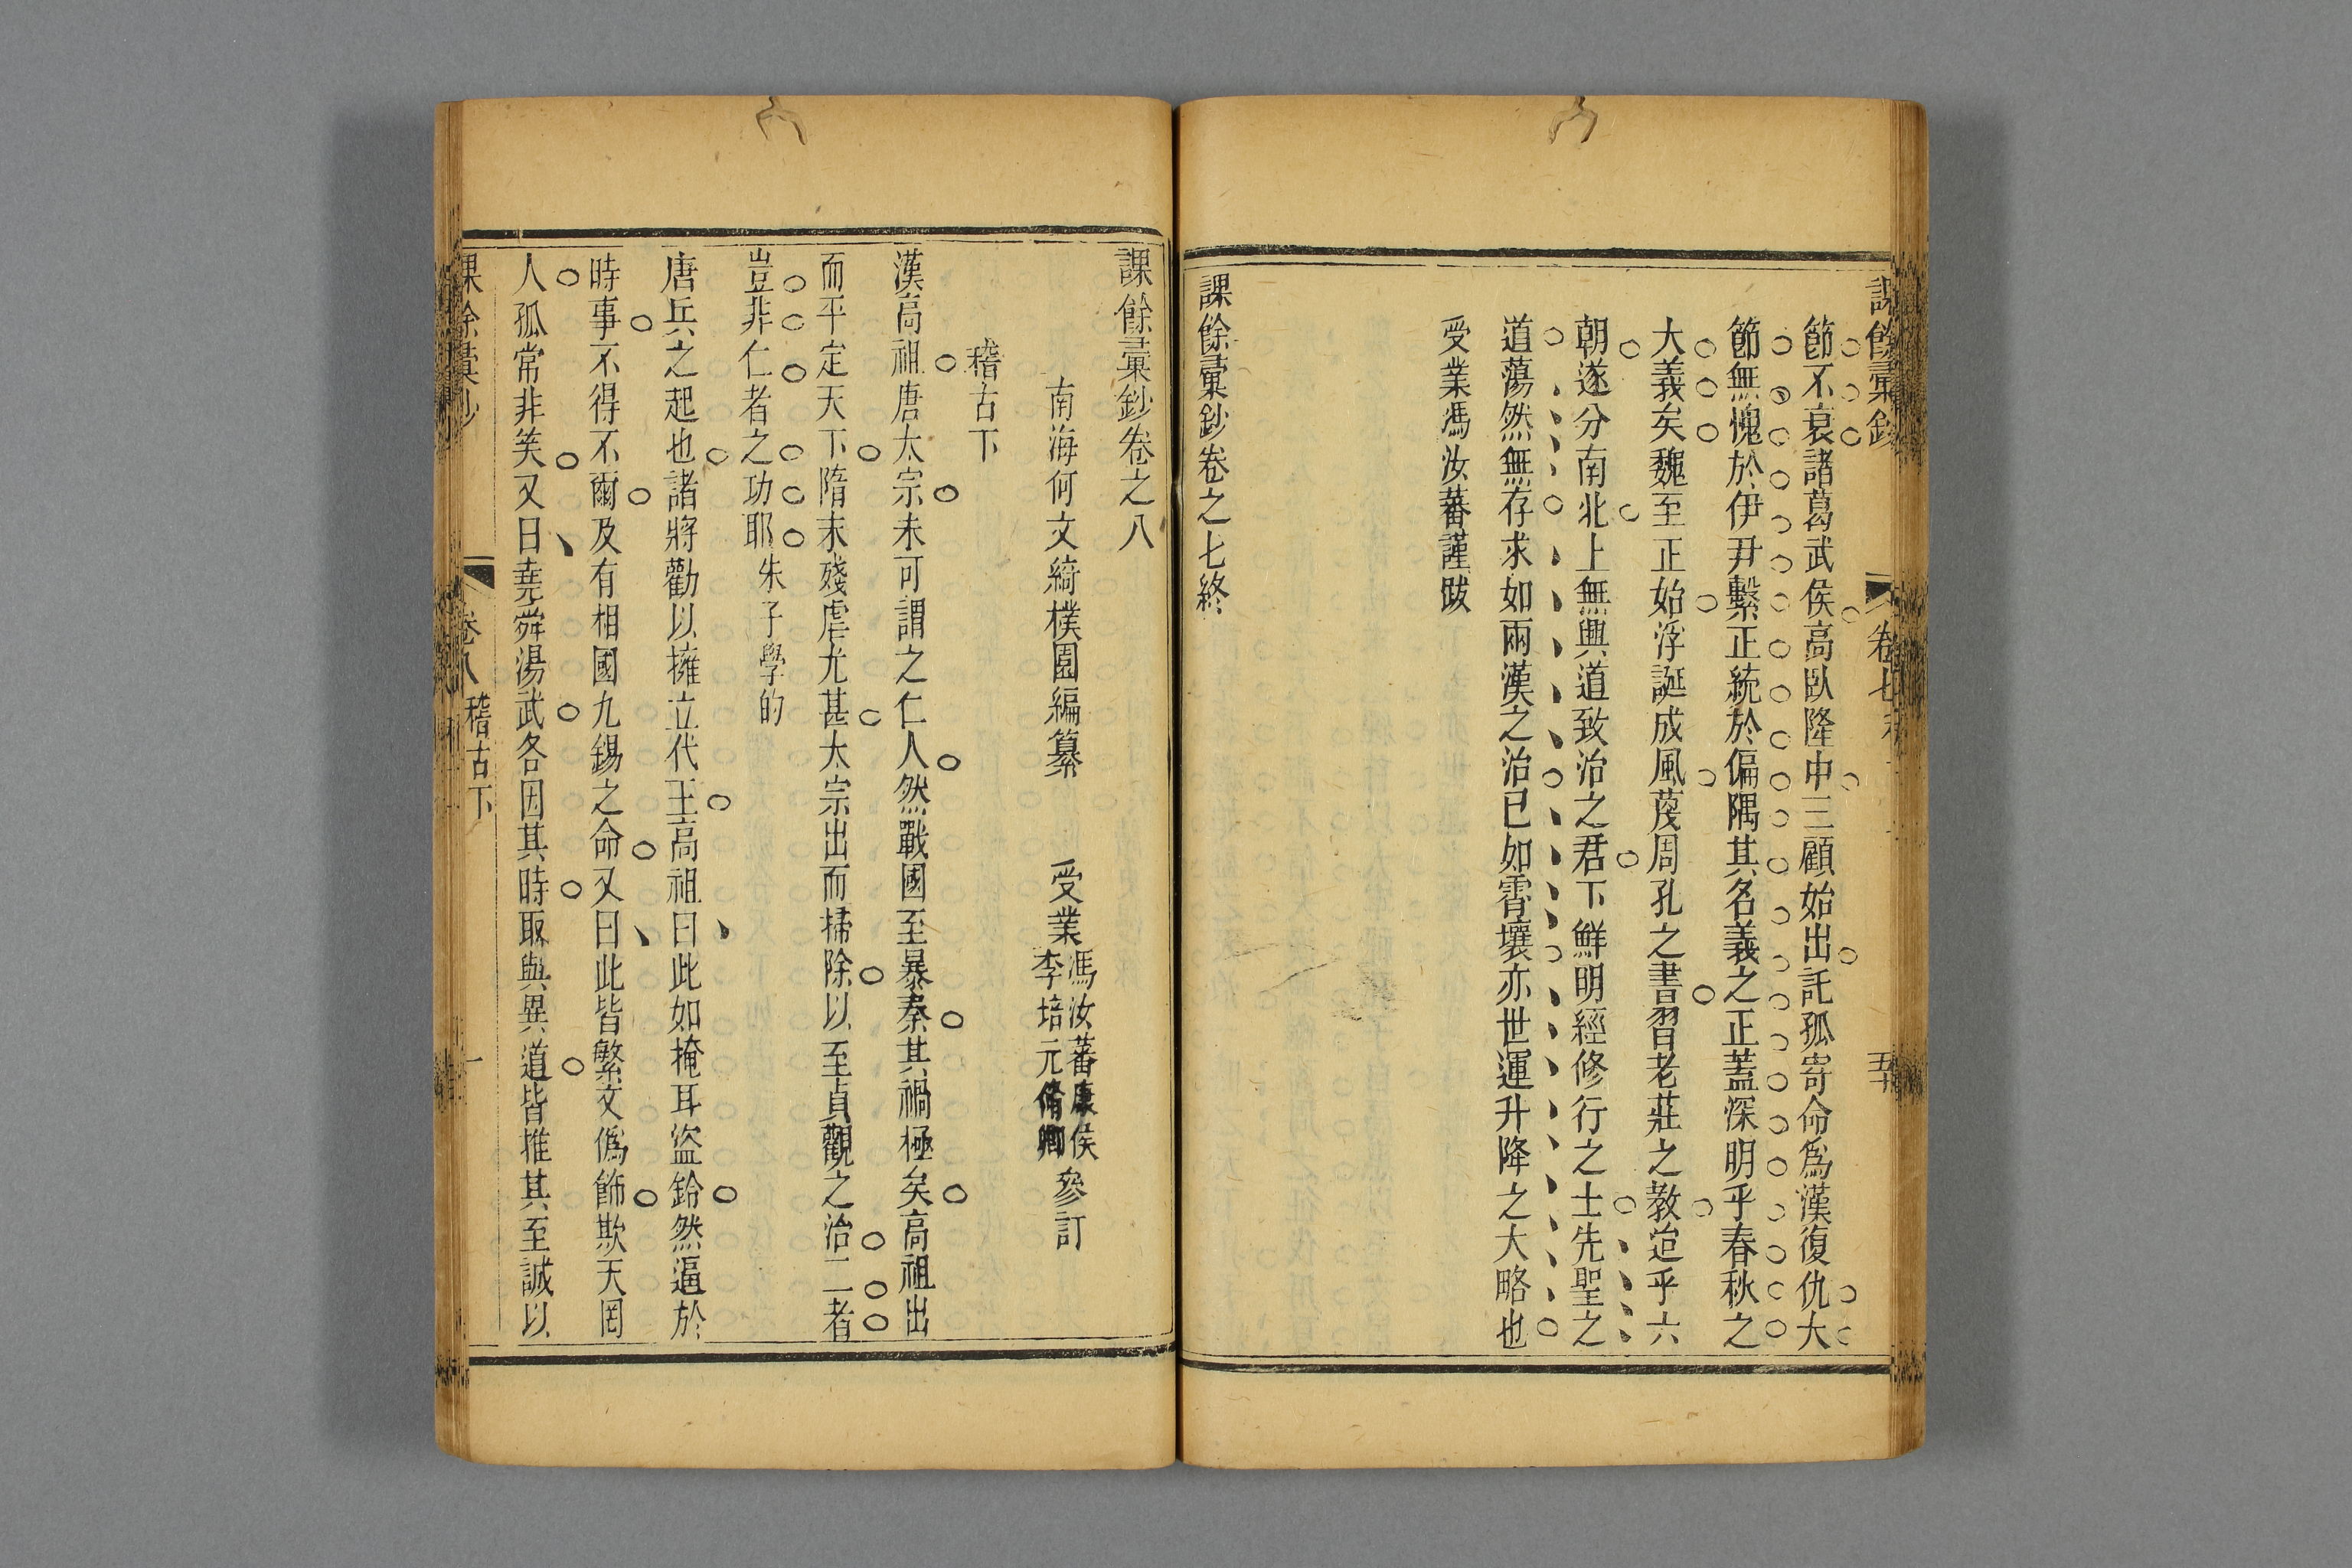 課餘彙鈔
卷七
五十
節不衰諸葛武侯高臥隆中三顧始出託孤寄命爲漢復仇大
節無愧於伊尹繫正統於偏隅其名義之正蓋深明乎春秋之
大義矣魏至正始浮誕成風蔑周孔之書習老莊之教迨乎六
朝遂分南北上無興道致治之君下鮮明經修行之士先聖之
道蕩然無存求如兩漢之治已如霄壤亦世運升降之大略也
受業馮汝蕃謹跋
課餘彙鈔卷之七終
課餘彙鈔卷之八
南海何文綺樸園編纂
受業馮汝蕃康侯
李培元脩卿
參訂
稽古下
漢高祖唐太宗未可謂之仁人然戰國至暴秦其禍極矣高祖出
而平定天下隋末殘虐尤甚太宗出而掃除以至貞觀之治二者
豈非仁者之功耶朱子學的
唐兵之起也諸將勸以擁立代王高祖曰此如掩耳盜鈴然逼於
時事不得不爾及有相國九錫之命又曰此皆繁文僞飾欺天罔
人孤常非笑又曰堯舜湯武各因其時取與異道皆推其至誠以
課餘彙鈔
卷八
稽古下
一